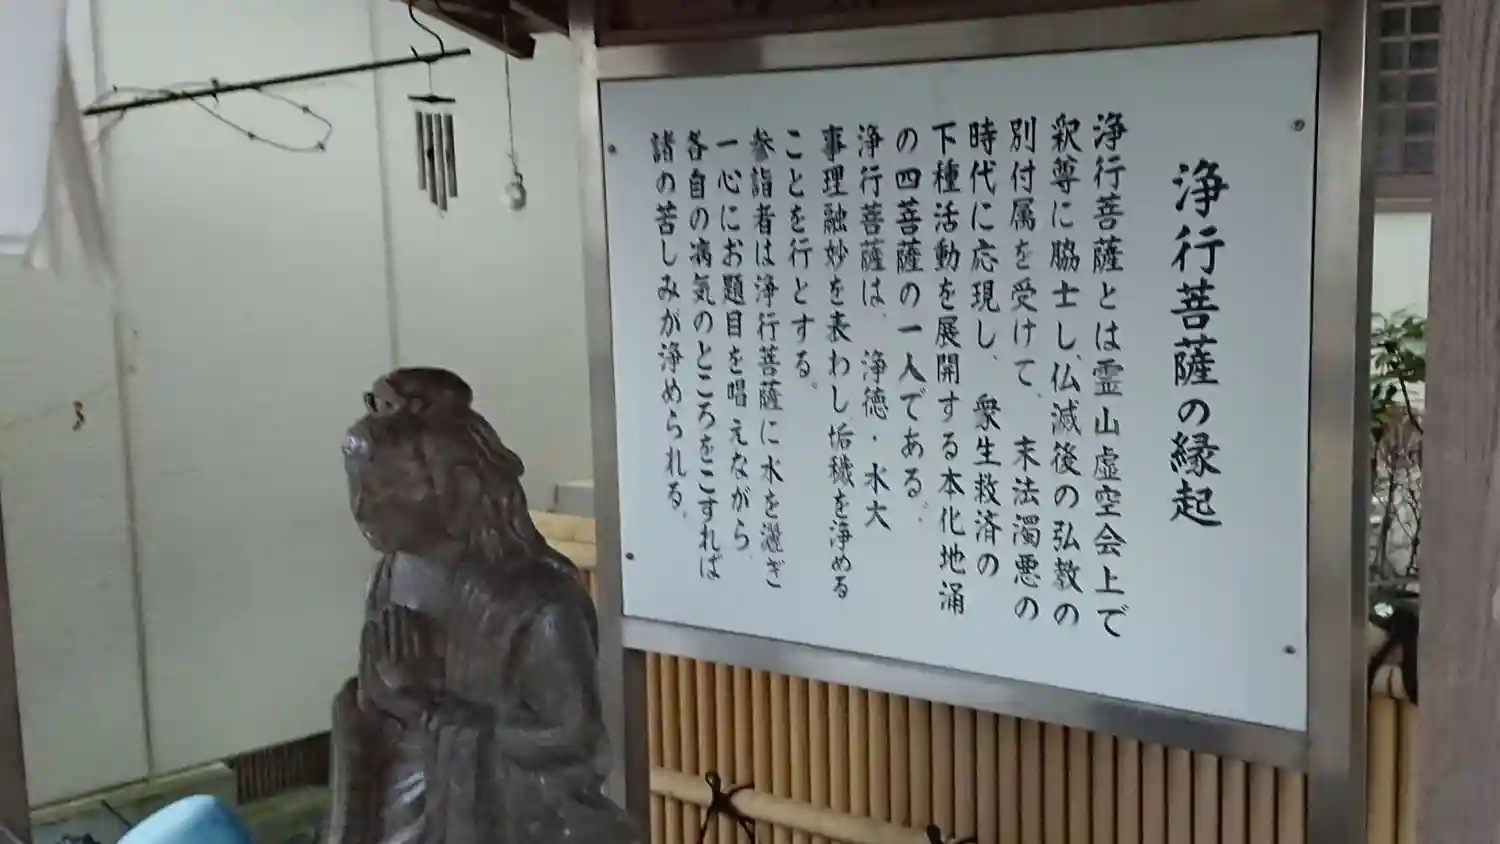 浄行菩薩の縁起
浄行菩薩とは霊山虚空会上で
釈尊に脇士し、仏滅後の弘教の
別付属を受けて、末法濁悪の
時代に応現し、衆生救済の
下種活動を展開する本化地涌
の四菩薩の一人である。
浄行菩薩は、浄徳・水大
事理融妙を表わし垢穢を浄める
ことを行とする。
参詣者は浄行菩薩に水を灑ぎ
一心にお題目を唱えながら、
各自の病気のところをこすれば
諸の苦しみが浄められる。